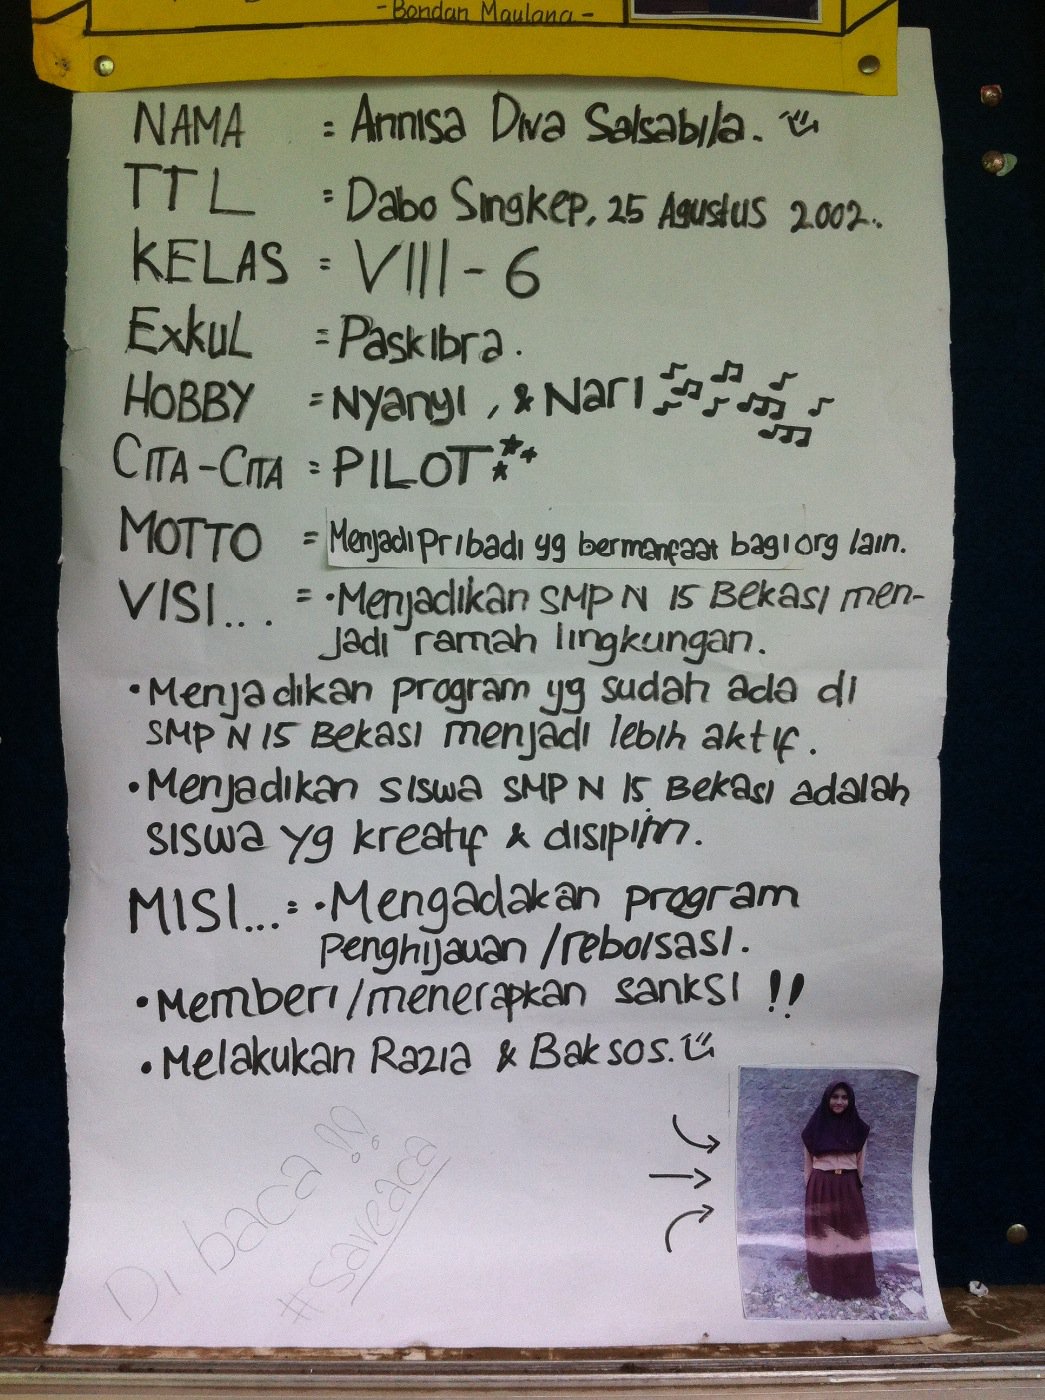 -Bondan Maulana-
NAMA = Annisa Diva Salsabila.
TTL = Dabo Singkep, 25 Agustus 2002.
KELAS = VIII-6
EXKUL = Paskibra.
HOBBY = Nyanyi, & Nari
CITA-CITA = PILOT
MOTTO = Menjadi pribadi yg bermanfaat bagi org lain.
VISI... = •Menjadikan SMP N 15 Bekasi men-
jadi ramah lingkungan.
•Menjadikan program yg sudah ada di
SMP N 15 Bekasi menjadi lebih aktif.
•Menjadikan siswa SMP N 15 Bekasi adalah
siswa yg kreatif & disiplin.
MISI... = •Mengadakan program
Penghijauan /reboisasi.
•Memberi/menerapkan sanksi !!
•Melakukan Razia & Baksos.
Di baca !!
#saveaca